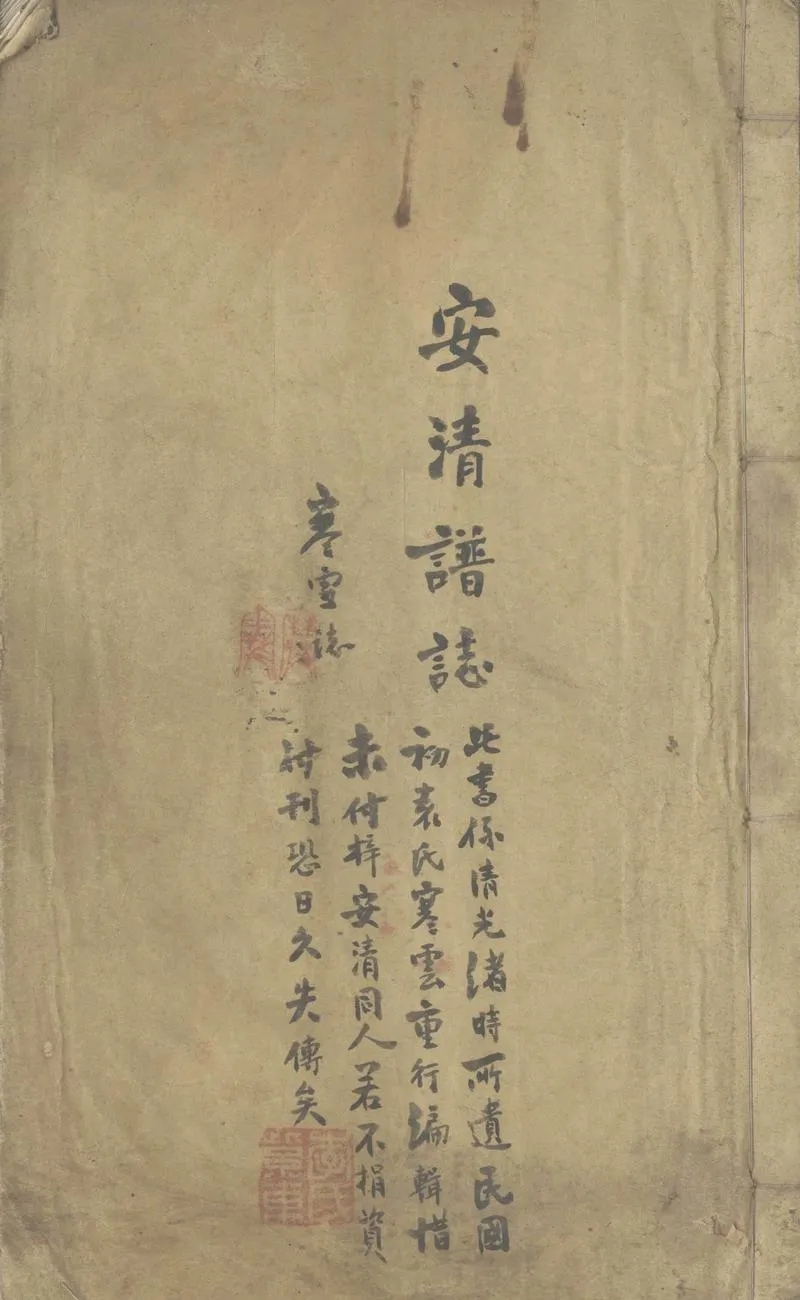 安清譜誌
此書係清光緒時所遺民國
初袁氏寒雲重行編輯惜
未付梓安清同人若不捐資
付刊恐日久失傳矣
寒雪誌